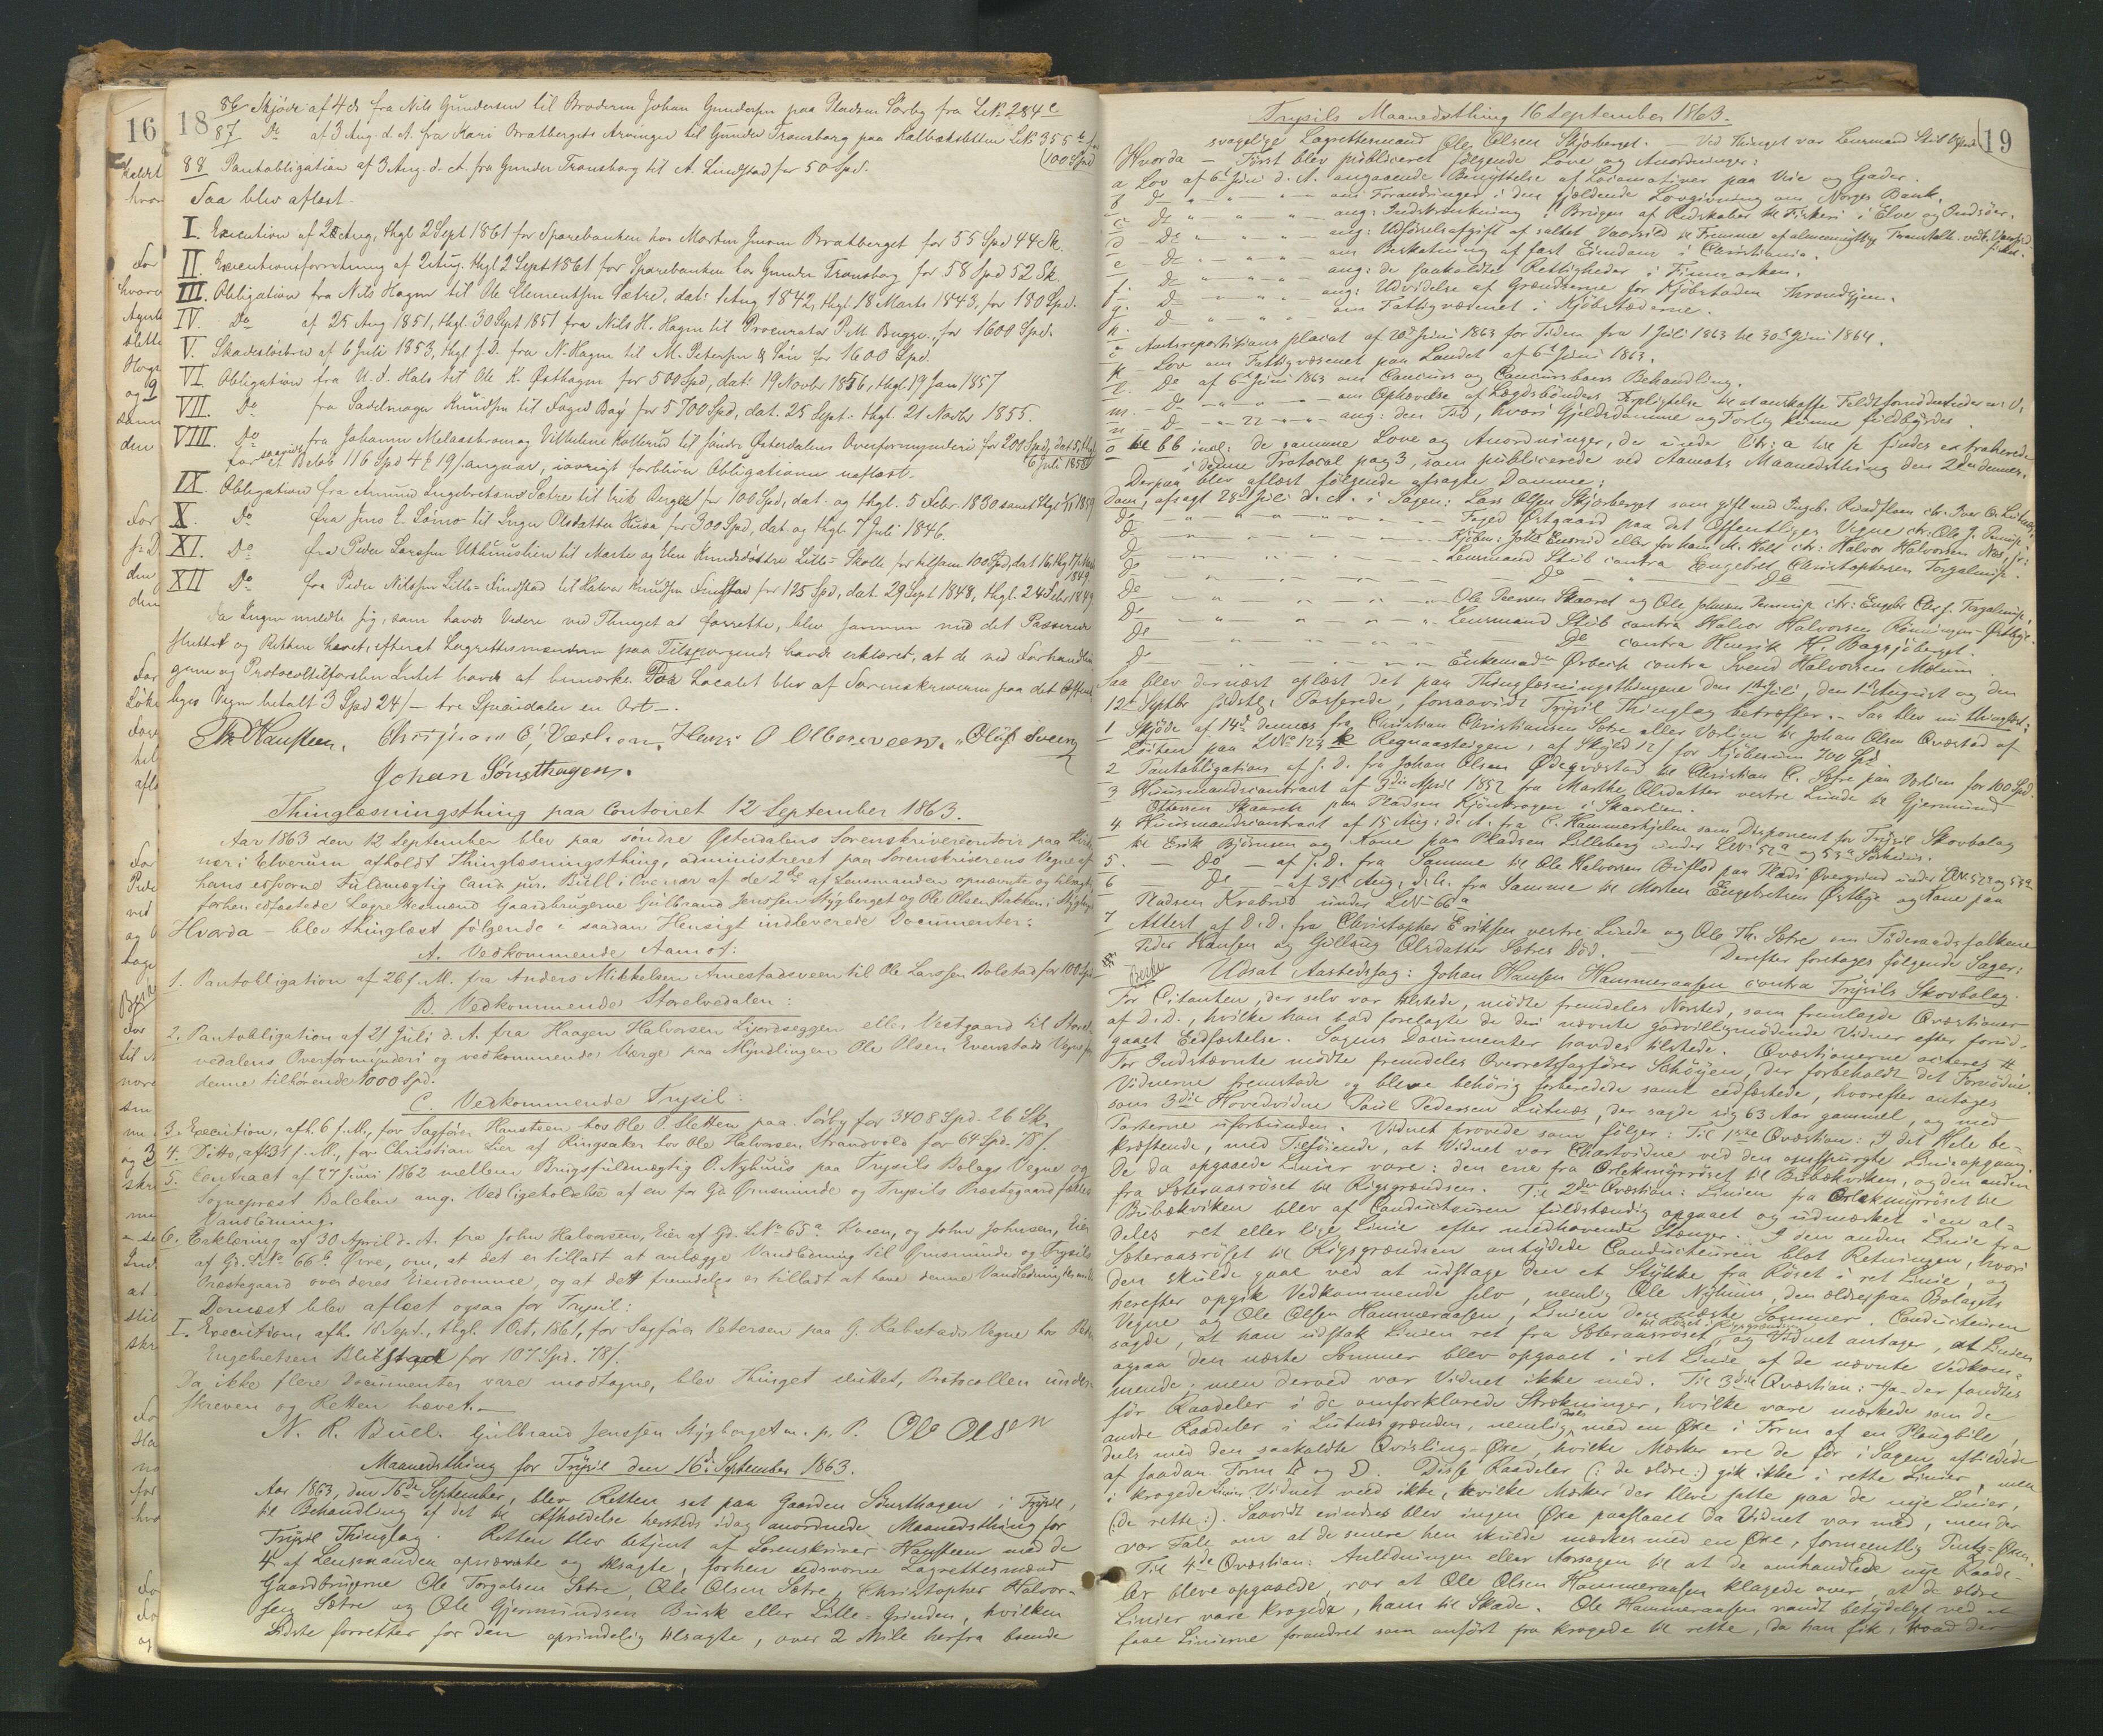 16
18
86 Skjöde af 4 ds fra Nils Gundersen til Broderen Johan Gundersen paa Pladsen Sörby fra L.No 284 c
87 Do af 3 Aug. d. A. fra Kari Bratbergets Arvinger til Gunder Transborg paa L.No 355 b for
(100 Spd.
88 Pantobligation af 3 Aug. d. A. fra Gunder Transborg til A. Lundstad for 50 Spd.
Saa blev aflæst.
I. Execution af Aug, thgl 2 Sept 1861 for Sparebanken hos Morten Bratberget for 55 Spd 44 Sk.
II. Executionsforretning af Aug. thgl 2 Sept 1861 for Sparebanken hos Gunder Transborg for 58 Spd 52 Sk.
III. Obligation fra Nils Hagen til Ole Clementsen Sætre, dat: 1 Aug 1842, thgl. 18 Marts 1843, for 180 Spd.
IV. Do af 25 Aug 1851, thgl. 30 Sept 1851 fra Nils H. Hagen til Procurator P. M. Bugge, for 1600 Spd.
V. Skadeslösbrev af 6 Juli 1853, thgl s. D. fra N. Hagen til M. Petersen & Sön for 1600 Spd.
VI. Obligation fra U. d. Hals til Ole K. Östhagen for 500 Spd, dat: 19 Novbr 1856, thgl 19 Jan 1857
VII. Do fra Sadelmager Knudsen til Foged Bay for 5700 Spd, dat. 25 Sept. thgl. 21 Novbr 1855.
VIII. Do fra Johannes Melaasbroen og Vilhelmine Kollerud til söndre Österdalens Overformynderi for 200 Spd, dat 5, thgl
6 Juli 1858
for saavidt et Belöb 116 Spd 4 ƒ 19 ſ. angaar, iovrigt forbliver Obligationen uaflæst.
IX. Obligation fra Amund Engebretsens Sætre til Erik Berger for 100 Spd, dat. og thgl. 5 Febr. 1830 samt thgl 1859
X. Do fra Jens E. Lömo til Inger Olsdatter Husa for 300 Spd, dat og thgl. 7 Juli 1846.
XI. Do fra Peder Larssen til Marte og Elen Knudsdöttre Lille-Skolle for tilsam. 100 Spd, dat 16, thgl 17 Marts
1849
XII Do fra Peder Nilssen Lille-Lundstad til Halvor Knudsen for 125 Spd, dat. 29 Sept 1848, thgl. 24 Febr 1849
Da Ingen meldte sig, som havde Videre ved Thinget at forrette, blev samme med det Passerede
sluttet og Retten hævet, efterat Lagrettesmændene paa Tilspörgende havde erklæret, at de ved Forhandlin-
gerne og Protocoltilförselen Intet havde at bemærke. For Localet blev af Sorenskriveren paa det Offent-
liges Vegne betalt 3 Spd 24 ſ — tre Speciedaler en Ort —.
Hansteen. Hans O Olberseveen. Oluf Sveen
Johan Sönsthagen.
Thinglæsningsthing paa Contoiret 12 September 1863.
Aar 1863 den 12 September blev paa söndre Österdalens Sorenskrivercontoir paa
nær i Elverum afholdt Thinglæsningsthing, administreret paa Sorenskriverens Vegne af
hans edsvorne Fuldmægtig Cand. jur. Bull i Overvær af de 2de af Lensmanden opnævnte og tilsagte,
forhen edfæstede Lagrettesmænd Gaardbrugerne Gulbrand Jenssen Stygberget og Ole Olsen Bakken i
Hvorda — blev thinglæst fölgende i saadan Hensigt indleverede Documenter:
A. Vedkommende Aamot:
1. Pantobligation af 26 f. M. fra Anders Mikkelsen Arnestadsveen til Ole Larssen Bolstad for 100 Spd.
B. Vedkommende Storelvedalen:
2. Pantobligation af 21 Juli d. A. fra Haagen Halvorsen Lijordseggen eller Vestgaard til Storel-
vedalens Overformynderi og vedkommende Værge paa Myndlingen Ole Olsen Evenstads Vegne for
denne tilhörende 1000 Spd.
C. Vedkommende Trysil:
3. Execution, afh. 6 f. M., for Sagförer Hansteen hos Ole P. Sletten paa Sörby for 3408 Spd. 26 Sk.
4. Ditto, afh. 31 f. M., for Christian Lier af Ringsaker hos Ole Halvorsen Strandvold for 64 Spd. 78 ſ.
5. Contract af 27 Juni 1862 mellem Brugsfuldmægtig O. Nyhuus paa Trysils Bolags Vegne og
Sognepræst Balchen ang. Vedligeholdelse af en for Gd. Örnsmunde og Trysils Præstegaard fælles
Vandledning.
6. Erklæring af 30 April d. A. fra John Halvorsen, Eier af Gd. L.No 65 a Sveen, og John Johnsen, Eier
af Gd. L.No 66 b Övre, om, at det er tilladt at anlægge Vandledning til Örnsmunde og Trysils
Præstegaard over deres Eiendomme, og at det fremdeles er tilladt at have denne Vandledning
Dernæst blev aflæst ogsaa for Trysil:
I. Execution, afh. 18 Sept., thgl. 1 Oct. 1861, for Sagförer Petersen paa G. Kabstads Vegne hos Peder
Engebretsen Blikstad for 107 Spd. 78 ſ.
Da ikke flere Documenter vare modtagne, blev Thinget sluttet, Protocollen under-
skreven og Retten hævet.—
N. R. Bull. Gulbrand Jenssen Stygberget m. p. P. Ole Olsen
Maanedsthing for Trysil den 16de September 1863.
Aar 1863, den 16de September, blev Retten sat paa Gaarden Sönsthagen i Trysil,
til Behandling af det til Afholdelse hersteds idag anordnede Maanedsthing for
Trysil Thinglag. Retten blev betjent af Sorenskriver Hansteen med de
4 af Lensmanden opnævnte og tilsagte, forhen edsvorne Lagrettesmænd
Gaardbrugerne Ole Torgalsen Sætre, Ole Olsen Sætre, Christopher Halvor-
sen Sætre og Ole Gjermundsen Busk eller Lille-Grinden, hvilken
Sidste forretter for den oprindelig tilsagte, over 2 Mile herfra boende
Trysils Maanedsthing 16 September 1863.
19
svagelige Lagrettesmand Ole Olsen Skjærberget. — Ved Thinget var Lensmand Stub tilstede
Hvorda — Först blev publiceret fölgende Love og Anordninger:
a Lov af 6te Juni d. A. angaaende Benyttelse af Locomotiver paa Veie og Gader.
b Do " " " om Forandringer i den gjeldende Lovgivning om Norges Bank.
c Do " " " ang: Indskrænkning i Brugen af Redskaber til Fiskeri i Elve og Indsöer.
d Do " " " ang: Udförselsafgift af saltet Vaarsild til Fremme af almeennyttige Foranstalt. vedk. Vaarsild-
fisket.
e Do " " " om Beskatning af fast Eiendom i Christiania.
f. Do " " " ang: de saakaldte Rettigheder i Finmarken.
g. Do " " " ang: Udvidelse af Grændserne for Kjöbstaden Throndhjem.
h. Do " " " om Fattigvæsenet i Kjöbstæderne.
i Amtsrepartitions placat af 20de Juni 1863 for Tiden fra 1 Juli 1863 til 30te Juni 1864.
k — Lov om Fattigvæsenet paa Landet af 6te Juni 1863.
l. Do af 6te Juni 1863 om Concurs og Concursboers Behandling.
m. — Do " " — om Ophævelse af Lægdsbönders Forpligtelse til at anskaffe
n — Do — " 22 — " — ang: den Tid, hvori Gjeldsdomme og Forlig kunne fuldbyrdes.
o til bb incl: de samme Love og Anordninger, der under litr: a til p findes extraherede
i denne Protocol pag 3, som publicerede ved Aamots Maanedsthing den 2den dennes.
Derpaa blev aflæst fölgende afsagte Domme:
Dom, afsagt 28de Juli d. A. i Sagen: Lars Olsen Skjærberget som gift med Ingeb.
Do — " — Foged Östgaard paa det Offentliges Vegne ctr: Ole J.
Do — " — ctr: Halvor Halvorsen Næs,
Do — " — Lensmand Stub contra Engebret Christophersen Torgalmip.
Do — " — Do — Do
Do — " — Ole Peersen Skaaret og Ole Johnsen
Do — " — Lensmand Stub contra Halvor Halvorsen Rönningen-Östbye.
Do — " — Do contra Henrik H. Bagsjöberget.
Do — " — contra Svend Halvorsen Moeun.
Saa blev dernæst oplæst det paa Thinglæsningsthingene den 1ste Juli, den 1ste August og den
12te Septbr sidstl, Passerede, forsaavidt Trysil Thinglag betræffer. — Saa blev nu thinglæst:
1 Skjöde af 14de dennes fra Christian Christiansen Sætre eller Vorlien til Johan Olsen Qværstad af
paa L.No 123 k Regnaasteigen, af Skyld 12 ſ for Kjöbesum 700 Spd
2 Pantobligation af s. D. fra Johan Olsen Ödegværstad til Christian C. Sætre paa Vorlien for 100 Spd.
3 Huusmandscontract af 3die April 1852 fra Marthe Olsdatter vestre Lunde til Gjermund
Ottersen Skaaren paa Pladsen Kjönkrogen i Skaarlien.
4 Huusmandscontract af 15 Aug: d. A. fra C. Hammerkjelen som Disponent for Trysil Skovbolag
til Erik Björnsen og Kone paa Pladsen Lilleberg under L.No 52 a og 53 a
5 — Do — af s. D. fra Samme til Ole Halvorsen paa Plads Övergrind under L.No 52 a og 53 a
6 — Do — af 31te Aug. d. A. fra Samme til Morten Engebretsen Östbye og Kone paa
Pladsen Krabsæd under L.No 66 a
7 Attest af D. D. fra Christopher Eriksen vestre Lunde og Ole Th. Sætre om Föderaadsfolkene
Peder Hansen og Gulloug Olsdatter Sætres Död. — Derefter foretages fölgende Sager:
Udsat Aastedssag: Johan Hansen Hammeraasen contra Trysils Skovbolag.
For Citanten, der selv var tilstede, mödte fremdeles Norsted, som fremlagde Qvæstioner
af D. D., hvilke han bad forelagte de deri nævnte godvilligmödende Vidner efter forud-
gaaet Eedfæstelse. Sagens Documenter havdes tilstede. Qvæstionerne acteres #
For Indstævnte mödte fremdeles Overretssagförer Schöyen, der forbeholdt det Fornödne.
Vidnerne fremstode og bleve behörig forberedede samt eedfæstede, hvorefter antoges
som 3die Hovedvidne Paul Pedersen Lutnæs, der sagde sig 63 Aar gammel, og med
Parterne uforbunden. Vidnet provede som fölger: Til 1ste Qvæstion: I det Hele be-
kræftende, med Tilföiende, at Vidnet var Chartvidne ved den omspurgte Linieopgang.
De da opgaaede Linier vare: den ene fra Örlekmyrröset til Bubækviken, og den anden
fra Sæteraasröset til Rigsgrændsen. Til 2den Qvæstion: Linien fra Orlekmyrröset til
Bubækviken blev af Conducteuren fuldstændig opgaaet og udmærket i en al-
deles ret eller lige Linie efter medhavende Stænger. I den anden Linie fra
Sæteraasröset til Rigsgrændsen antydede Conducteuren blot Retningen, hvori
den skulde gaae ved at udstage den et Stykke fra Röset i ret Linie, og
herefter opgik Vedkommende selv, nemlig Ole Nyhuus, den ældre, paa Bolagets
Vegne og Ole Olsen Hammeraasen, Linien den næste Sommer. Conducteuren
sagde, at han udstak Linien ret fra Sæteraasröset til Röset i Rigsgrændsen, og Vidnet antager, at Linien
ogsaa den næste Sommer blev opgaaet i ret Linie af de nævnte Vedkom-
mende; men derved var Vidnet ikke med. Til 3die Qvæstion: Ja — der fandtes
för Raadeler i de omforklarede Strækninger, hvilke vare mærkede som de
andre Raadeler i Lutnæsgrænden, nemlig deels med en Öxe i Form af en Plougbile,
deels med den saakaldte Qvisling-Öxe, hvilke Mærker ere de för i Sagen afbildede
af saadan Form D og D. Disse Raadeler (: de ældre :) gik ikke i rette Linier, men
i krogede Linier. Vidnet veed ikke, hvilke Mærker der bleve satte paa de nye Linier,
(: de rette :). Saavidt erindres blev ingen Öxe paaslaaet da Vidnet var med, men der
var Tale om at de senere hen skulde mærkes med en Öxe, formeentlig Öxen.
Til 4de Qvæstion: Anledningen eller Aarsagen til at de omhandlede nye Raade-
ler bleve opgaaede, var at Ole Olsen Hammeraasen klagede over, at de ældre
Linier vare krogede, ham til Skade. Ole Hammeraasen vandt betydeligt ved at
faae Linierne forandret som anfört fra krogede til rette, da han fik, hvad der